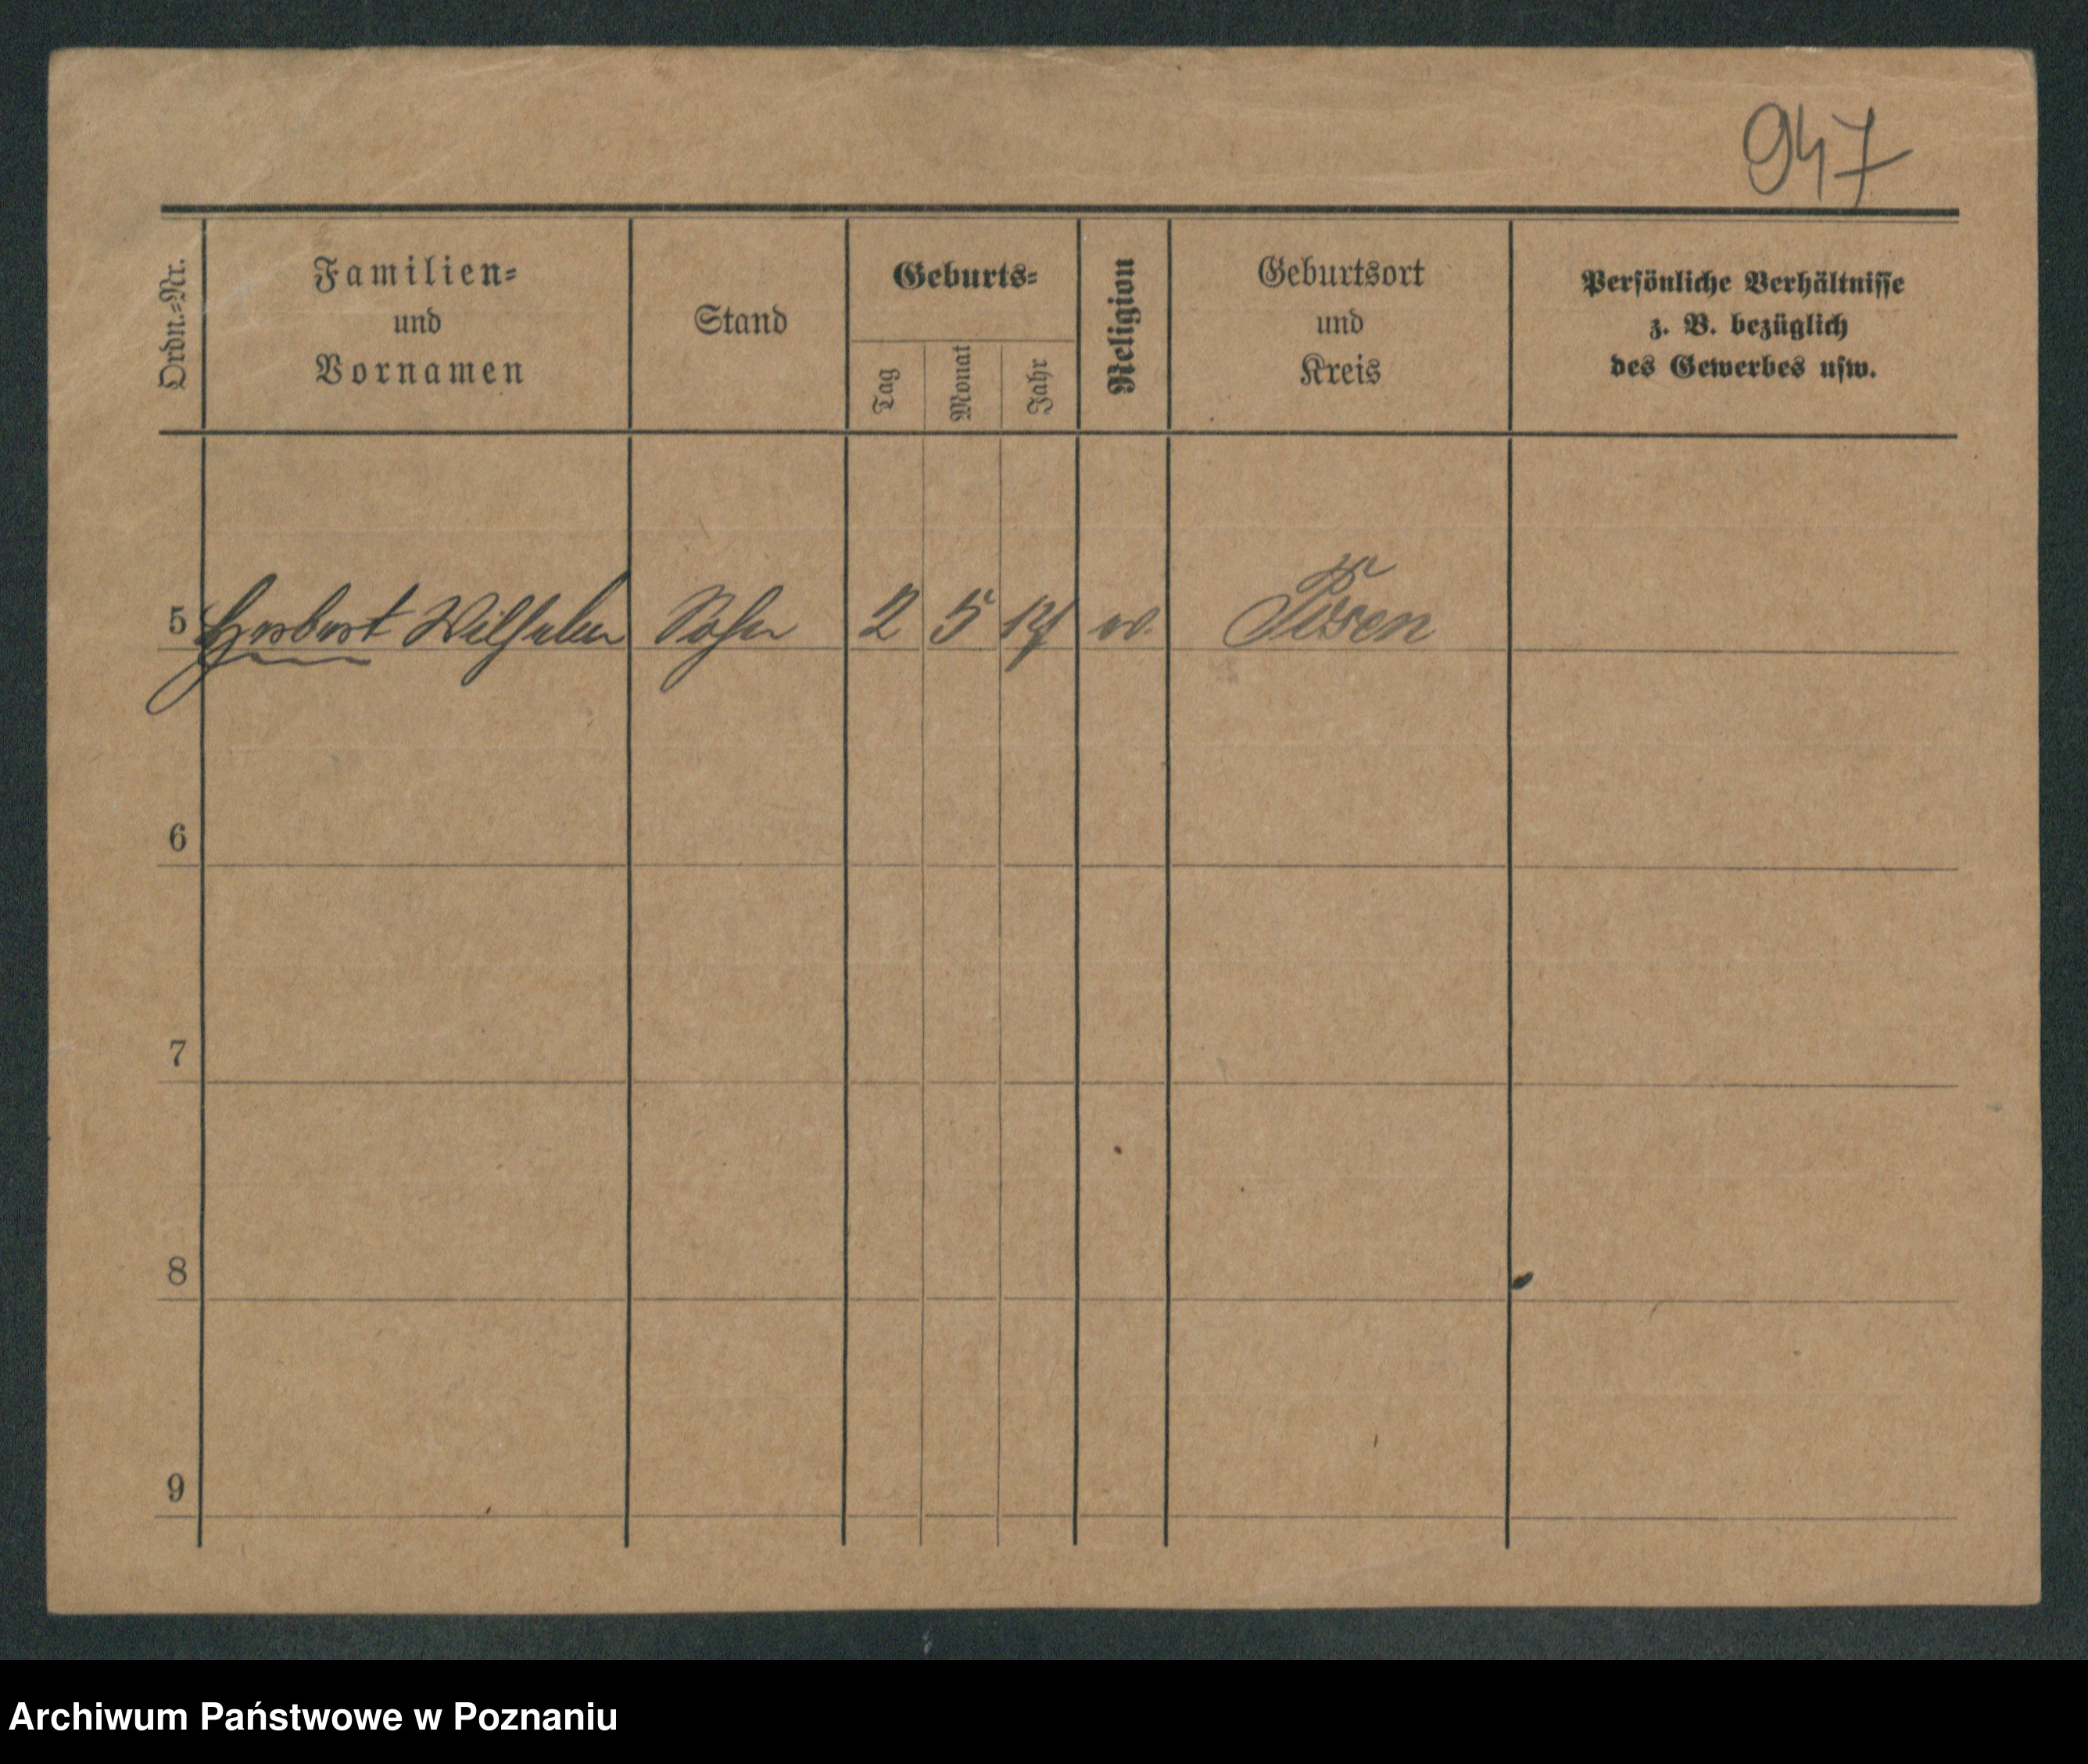 947
Ordn.-Nr.
Familien-
und
Vornamen
Stand
Geburts-
Tag
Monat
Jahr
Religion
Geburtsort
und
Kreis
Persönliche Verhältnisse
z. B. bezüglich
des Gewerbes usw.
5 Herbert Wilhelm Sohn 2 5 Posen
6
7
8
9
Archiwum Państwowe w Poznaniu